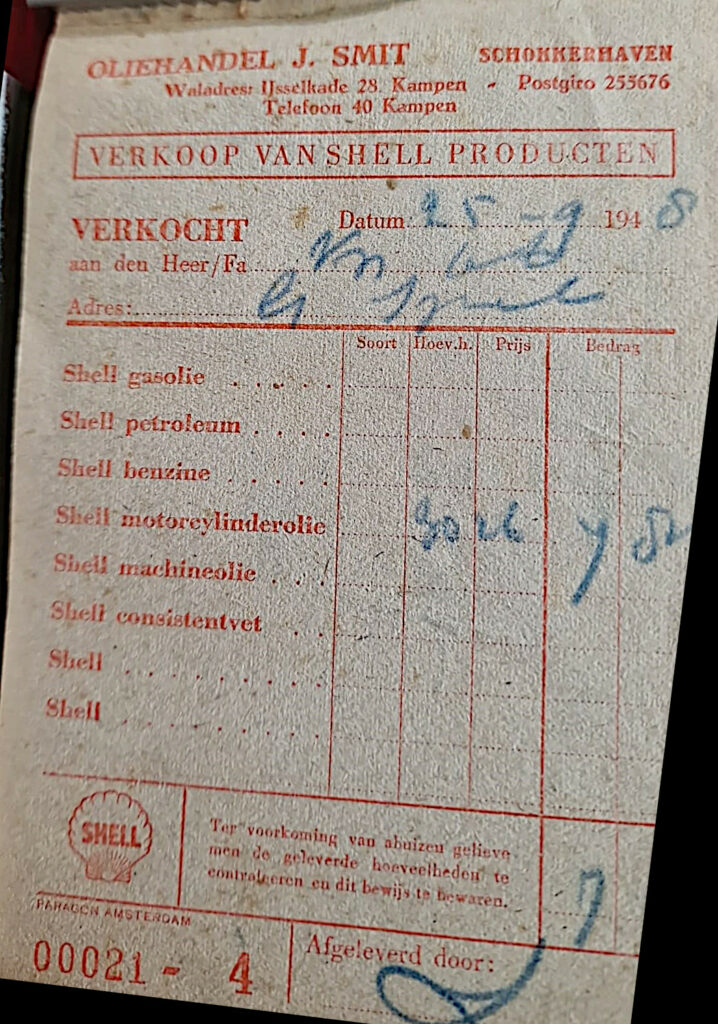 OLIEHANDEL J. SMIT SCHOKKERHAVEN
Waladres: IJsselkade 28. Kampen - Postgiro 255676
Telefoon 40 Kampen
VERKOOP VAN SHELL PRODUCTEN
VERKOCHT Datum 25-9 1948
aan den Heer/Fa
Adres:
Soort Hoev.h. Prijs Bedrag
Shell gasolie
Shell petroleum
Shell benzine
Shell motorcylinderolie
Shell machineolie
Shell consistentvet
Shell
Shell
SHELL
Ter voorkoming van abuizen gelieve
men de geleverde hoeveelheden te
controleeren en dit bewijs te bewaren.
PARAGON AMSTERDAM
00021 - 4
Afgeleverd door: